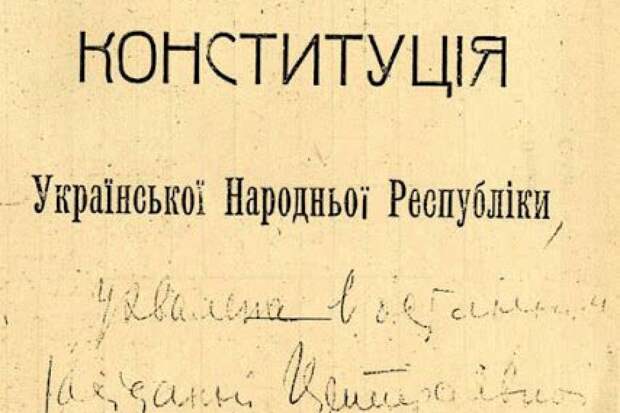 КОНСТИТУЦІЯ
Української Народньої Республіки,
ухвалена в останнім
засіданні Центральної